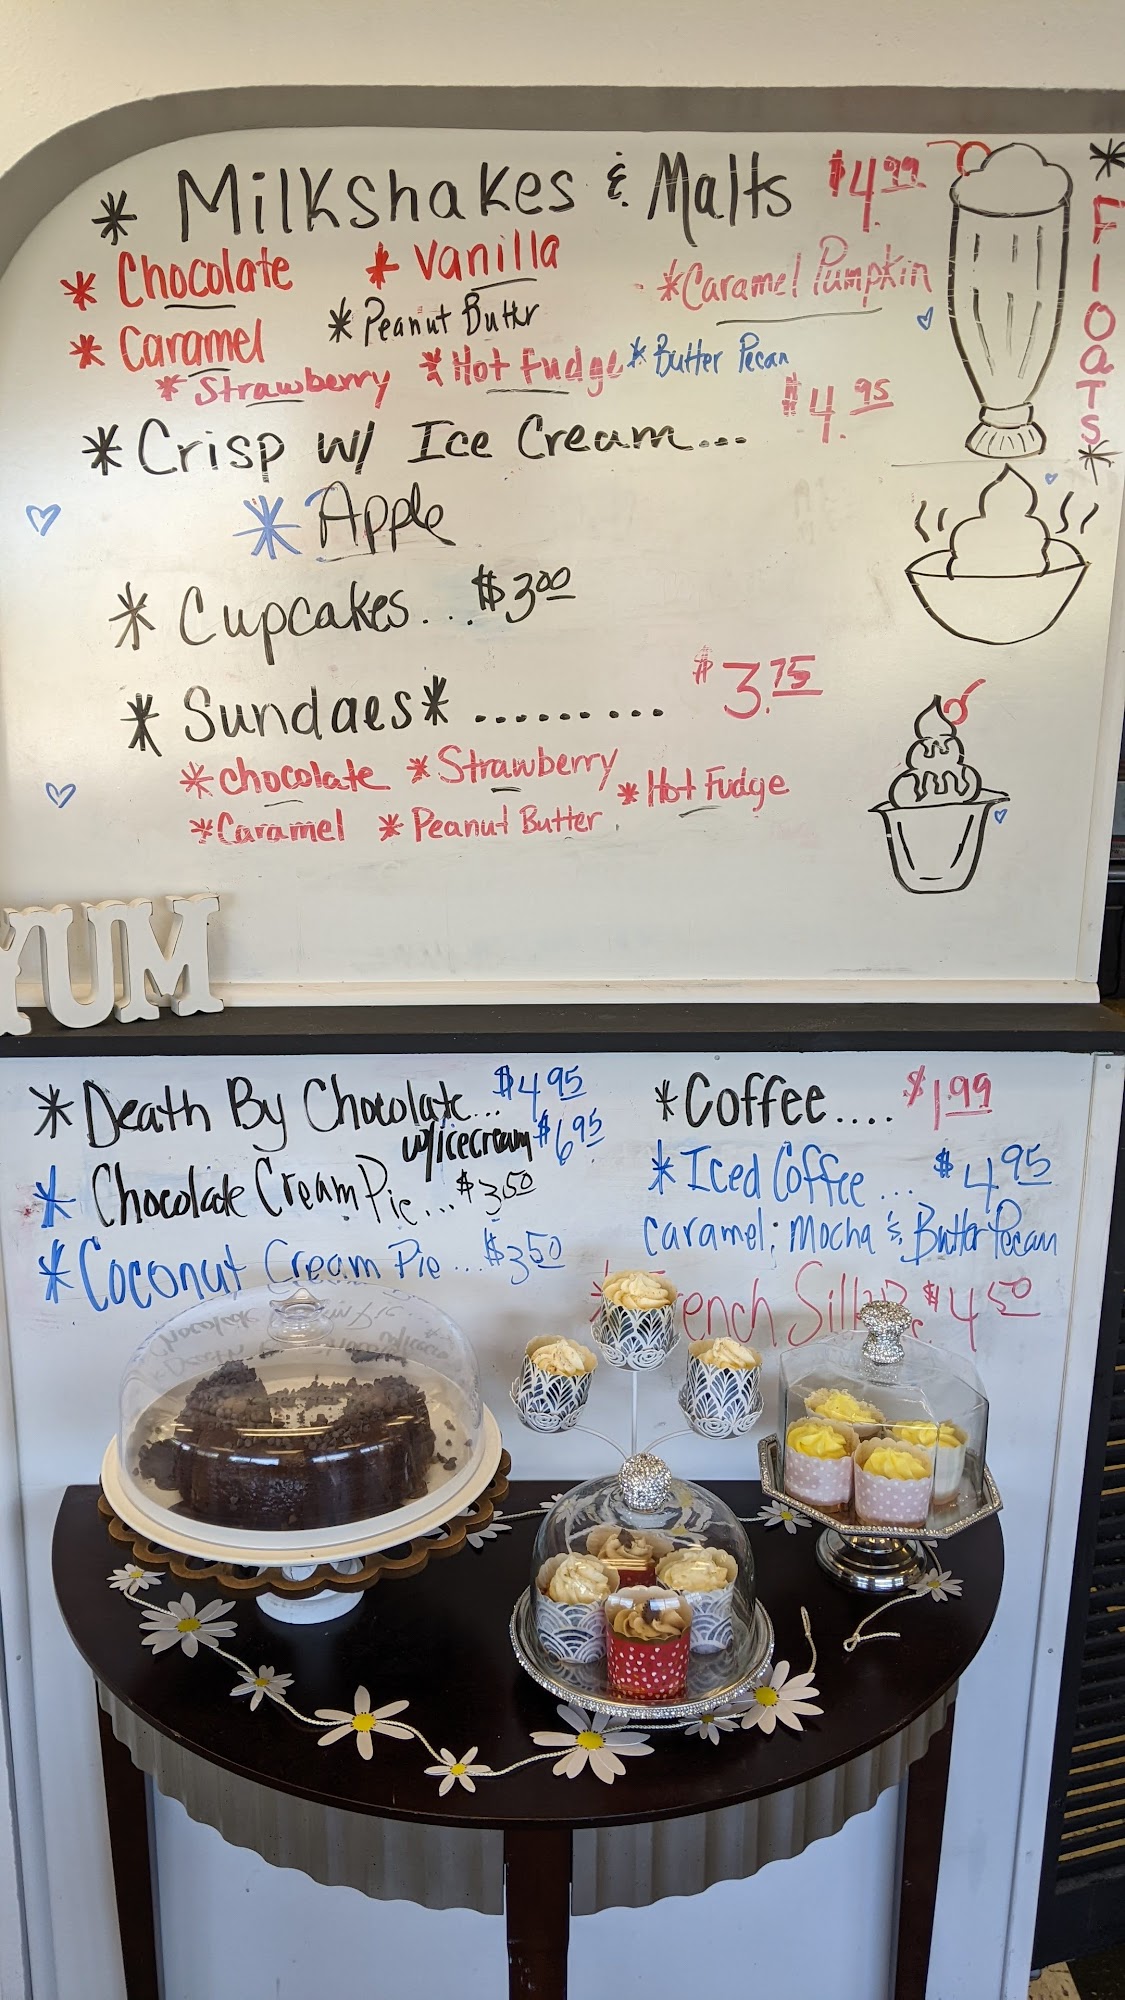 * Milkshakes & Malts $4.99
* Chocolate * Vanilla * Caramel Pumpkin
* Caramel * Peanut Butter
* Strawberry * Hot Fudge * Butter Pecan
* Crisp w/ Ice Cream... $4.95
* Apple
* Cupcakes... $3.00
* Sundaes* ......... $3.75
* chocolate * Strawberry * Hot Fudge
* Caramel * Peanut Butter
* Floats *
YUM
* Death By Chocolate... $4.95
w/icecream $6.95
* Chocolate Cream Pie... $3.50
* Coconut Cream Pie... $3.50
* Coffee.... $1.99
* Iced Coffee... $4.95
caramel; Mocha & Butter Pecan
* French Silk $4.50